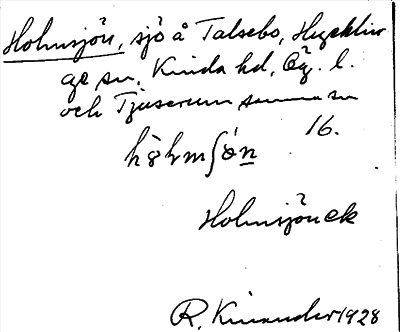 Holmsjön, sjö å Talsebo, Hycklin
ge sn. Kinda hd, Ög. l.
och Tjuserum samma sn
16.
Holmsjön ek
R. Kinander 1928